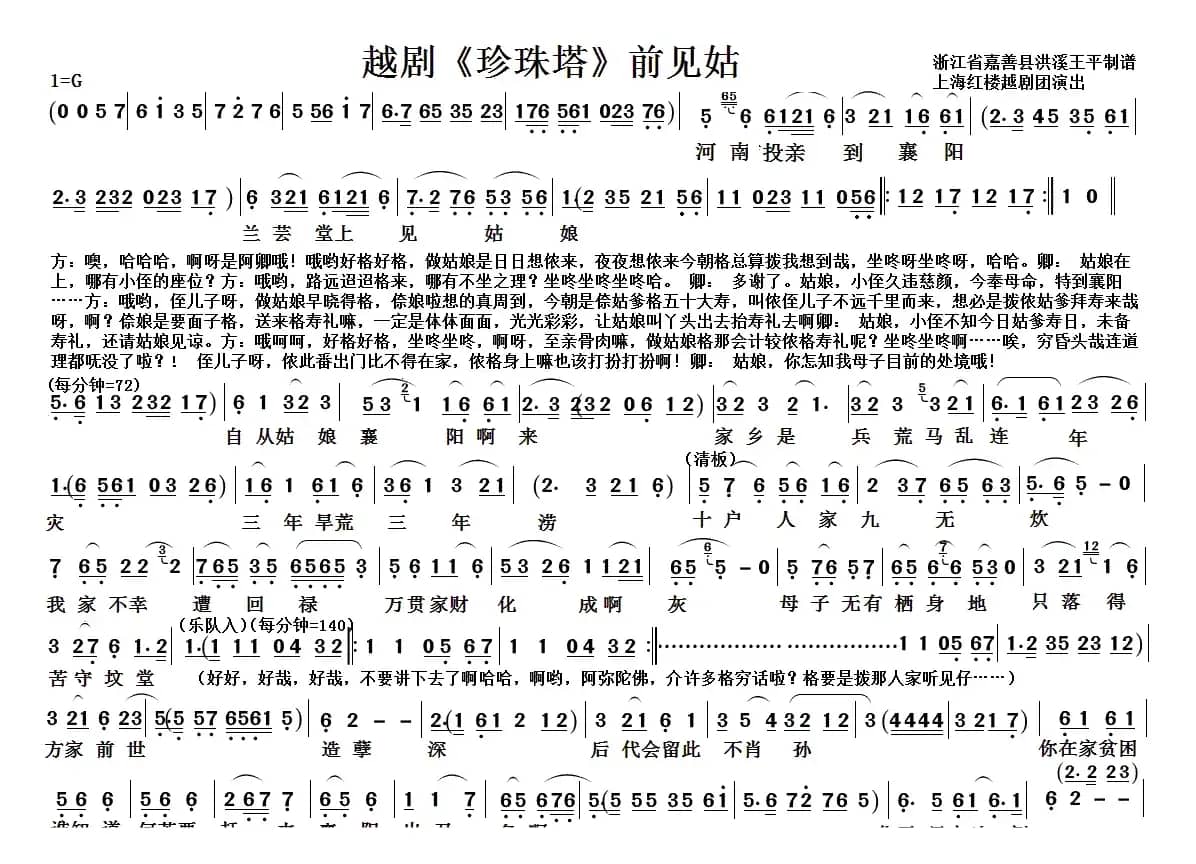 越剧《珍珠塔》前见姑
1=G
浙江省嘉善县洪溪王平制谱
上海红楼越剧团演出
(0 0 5 7 | 6 i 3 5 | 7 2 7 6 | 5 56 i 7 | 6.7 65 35 23 | 176 561 023 76) | 5 65 6 6121 6 | 3 21 16 61 | (2.3 45 35 61 |
河南投亲 到 襄 阳
2.3 232 023 17) | 6 321 6121 6 | 7.2 76 53 56 | 1.(2 35 21 56 | 11 023 11 056 |: 12 17 12 17 :| 1 0 ||
兰芸 堂上 见 姑 娘
方：噢，哈哈哈，啊呀是阿卿哦！哦哟好格好格，做姑娘是日日想侬来，夜夜想侬来今朝格总算拨我想到哉，坐咚呀坐咚呀，哈哈。卿： 姑娘在
上，哪有小侄的座位？方：哦哟，路远迢迢格来，哪有不坐之理？坐咚坐咚坐咚哈。 卿： 多谢了。姑娘，小侄久违慈颜，今奉母命，特到襄阳
……方：哦哟，侄儿子呀，做姑娘早晓得格，倷娘啦想的真周到，今朝是倷姑爹格五十大寿，叫侬侄儿子不远千里而来，想必是拨侬姑爹拜寿来哉
呀，啊？倷娘是要面子格，送来格寿礼嘛，一定是体体面面，光光彩彩，让姑娘叫丫头出去抬寿礼去啊卿： 姑娘，小侄不知今日姑爹寿日，未备
寿礼，还请姑娘见谅。方：哦呵呵，好格好格，坐咚坐咚，啊呀，至亲骨肉嘛，做姑娘格那会计较侬格寿礼呢？坐咚坐咚啊……唉，穷昏头哉连道
理都呒没了啦？！ 侄儿子呀，侬此番出门比不得在家，侬格身上嘛也该打扮打扮啊！卿： 姑娘，你怎知我母子目前的处境哦！
(每分钟=72)
5.6 13 232 17) | 6 1 32 3 | 53 2 1 16 61 | 2.3 2(32 06 12) | 32 3 2 1. | 32 3 5 321 | 6.1 61 23 26 |
自从姑 娘襄 阳啊 来 家乡是 兵 荒马乱连 年
(清板)
1.(6 561 03 26) | 16 1 61 6 | 36 1 3 21 | (2. 3 21 6) | 5 7 6 56 16 | 2 37 65 63 | 5.6 5 - 0
灾 三 年 旱荒 三 年 涝 十 户 人 家 九 无 炊
7 65 22 3 2 | 765 35 6565 3 | 56 116 2 | 53 26 1 121 | 65 6 5 - 0 | 5 76 57 | 65 6 7 6 53 | 23 21 12 1 6
我 家 不幸 遭 回 禄 万贯家财 化 成啊 灰 母 子 无有 栖 身 地 只 落 得
(乐队入)(每分钟=140)
3 27 6 1.2 | 1.(1 11 04 32 |: 1 1 05 67 | 1 1 04 32 :|………………| 1 1 05 67 | 1.2 35 23 12) |
苦守坟堂 (好好，好哉，好哉，不要讲下去了啊哈哈，啊哟，阿弥陀佛，介许多格穷话啦？格要是拨那人家听见仔……)
3 21 6 23 | 5(5 57 6561 5) | 6 2 - - | 2.(1 61 2 12) | 3 21 6 1 | 3 5 4 3 2 12 | 3 (4444 | 3 21 7) | 61 61 |
方家 前 世 造 孽 深 后 代会留此 不肖 孙 你在家贫困
(2.2 23)
56 6 | 56 6 | 2 67 7 | 6 5 6 | 1 1 7 | 65 676 | 5.(5 55 35 61 | 5.6 72 76 5) | 6. 5 61 6.1 | 6 2 - -